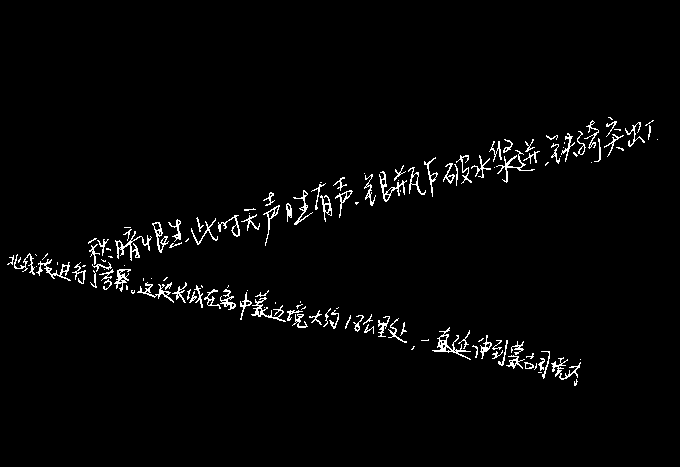 愁暗恨生,此时无声胜有声.银瓶乍破水浆迸,铁骑突出
北线段进行了考察。这段长城在离中蒙边境大约18公里处,一直延伸到蒙古国境内